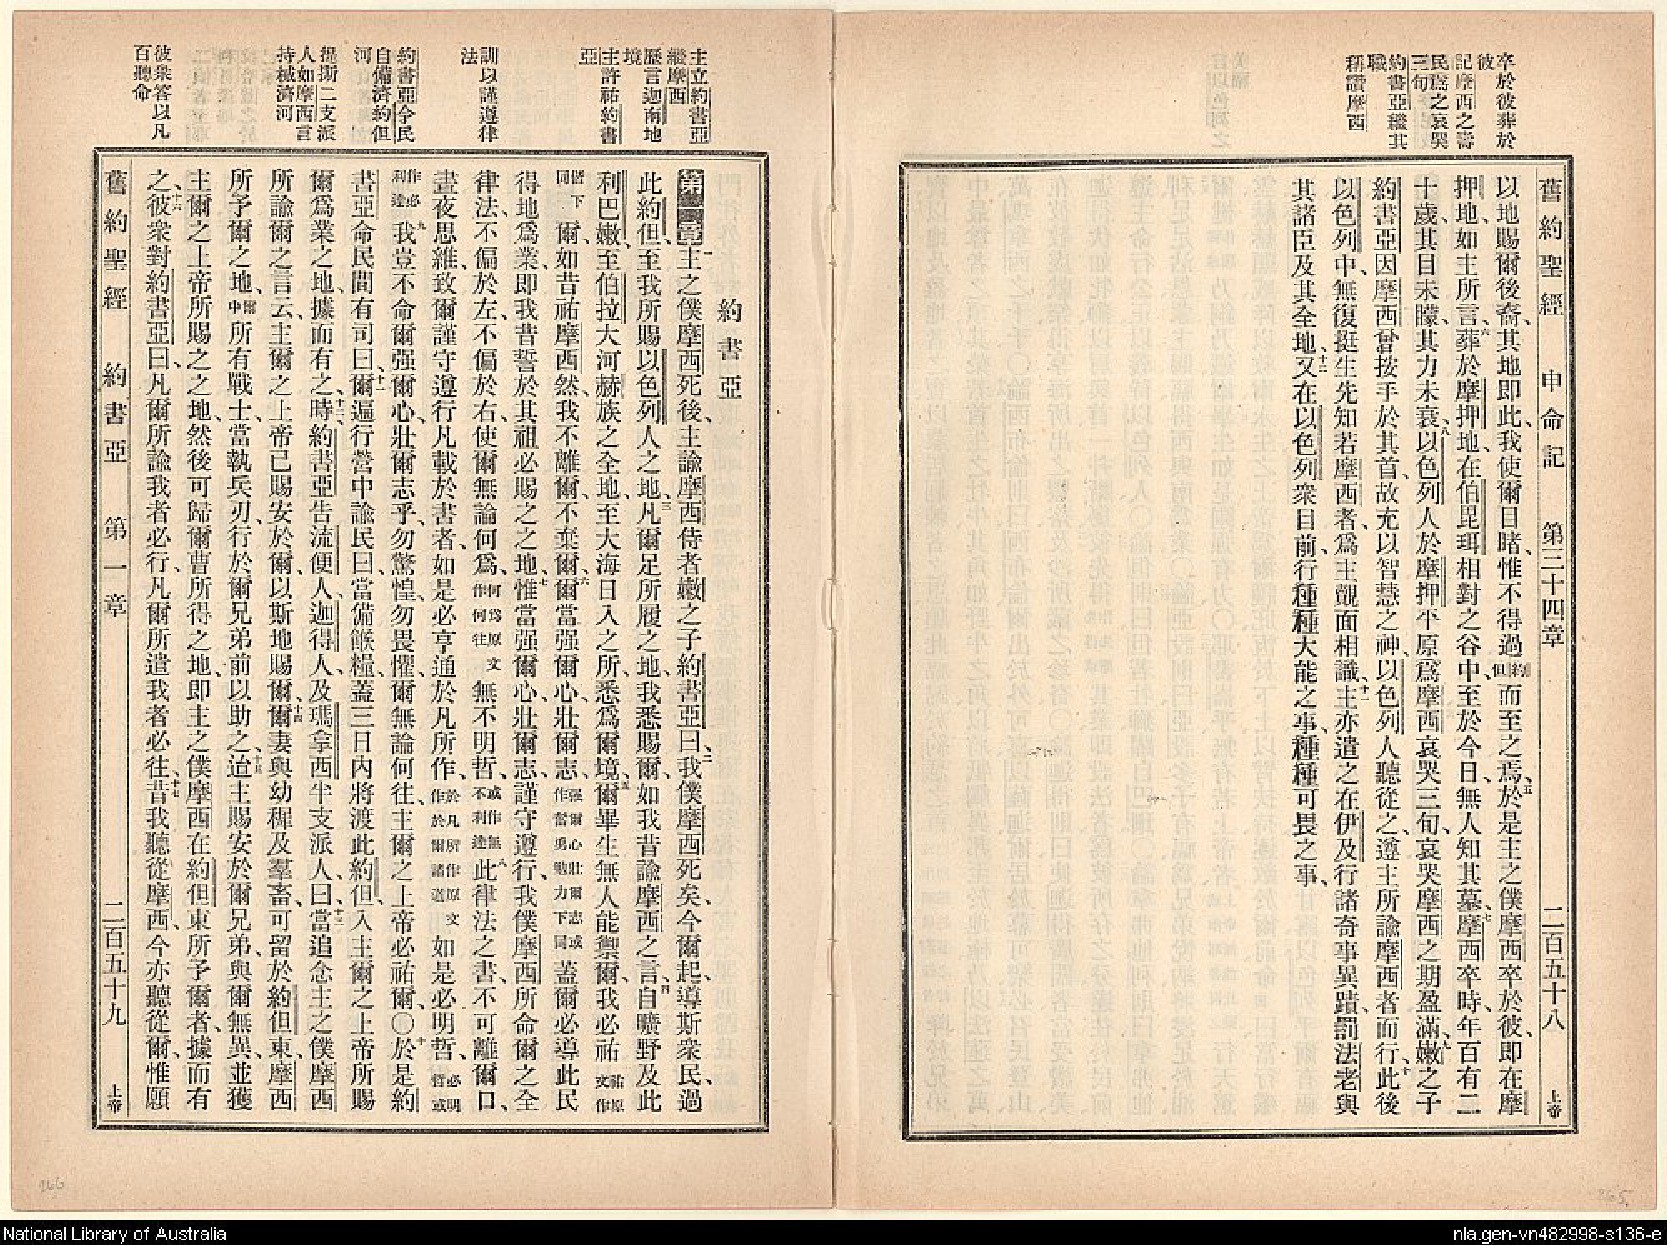 舊約聖經 申命記 第三十四章 二百五十八 上帝
卒於彼葬於
彼
記摩西之壽
民爲之哀哭
三旬
約書亞繼其
職
稱讚摩西
以地賜爾後裔其地卽此、我使爾目睹、惟不得過約但而至之焉、五於是主之僕摩西卒於彼、卽在摩
押地、如主所言、六葬於摩押地、在伯毘珥相對之谷中、至於今日、無人知其墓、七摩西卒時、年百有二
十歲、其目未矇、其力未衰、八以色列人於摩押平原、爲摩西哀哭三旬、哀哭摩西之期盈滿、九嫩之子
約書亞、因摩西曾按手於其首、故充以智慧之神、以色列人聽從之、遵主所諭摩西者而行、十此後
以色列中、無復挺生先知若摩西者、爲主覿面相識、十一主亦遣之在伊及、行諸奇事異蹟、罰法老與
其諸臣、及其全地、十二又在以色列衆目前、行種種大能之事、種種可畏之事、
主立約書亞
繼摩西
歷言迦南地
境
主許祐約書
亞
訓以謹遵律
法
約書亞令民
自備濟約但
河
提斯二支派
人如摩西言
持械濟河
彼衆答以凡
百聽命
約書亞
第一章一主之僕摩西死後、主諭摩西侍者嫩之子約書亞曰、二我僕摩西死矣、今爾起、導斯衆民、過
此約但、至我所賜以色列人之地、三凡爾足所履之地、我悉賜爾、如我昔諭摩西之言、四自曠野及此
利巴嫩、至伯拉大河、赫族之全地、至大海日入之所、悉爲爾境、五爾畢生無人能禦爾、我必祐祐原文作
偕下同爾、如昔祐摩西然、我不離爾、不棄爾、六爾當强爾心、壯爾志、强爾心壯爾志或作當勇敢力下同蓋爾必導此民
得地爲業、卽我昔誓於其祖必賜之之地、七惟當强爾心、壯爾志、謹守遵行、我僕摩西所命爾之全
律法、不偏於左、不偏於右、使爾無論何爲、何爲原文作何往無不明哲、或作無不利達八此律法之書、不可離爾口、
晝夜思維、致爾謹守遵行凡載於書者、如是必亨通於凡所作、於凡所作原文作於爾諸道如是必明哲、必明哲或
作必利達九我豈不命爾强爾心、壯爾志乎、勿驚惶、勿畏懼、爾無論何往、主爾之上帝必祐爾、〇十於是約
書亞命民間有司曰、十一爾遍行營中諭民曰、當備餱糧、蓋三日內將渡此約但、入主爾之上帝所賜
爾爲業之地、據而有之、十二時約書亞告流便人、迦得人、及瑪拿西半支派人曰、十三當追念主之僕摩西
所諭爾之言云、主爾之上帝已賜安於爾、以斯地賜爾、十四爾妻與幼穉及羣畜、可留於約但東、摩西
所予爾之地、爾中所有戰士、當執兵刃、行於爾兄弟前以助之、十五迨主賜安於爾兄弟、與爾無異、並獲
主爾之上帝所賜之之地、然後可歸爾曹所得之地、卽主之僕摩西在約但東所予爾者、據而有
之、十六彼衆對約書亞曰、凡爾所諭我者必行、凡爾所遣我者必往、十七昔我聽從摩西、今亦聽從爾、惟願
舊約聖經 約書亞 第一章 二百五十九 上帝
266
265
National Library of Australia
nla.gen-vn482998-s136-e